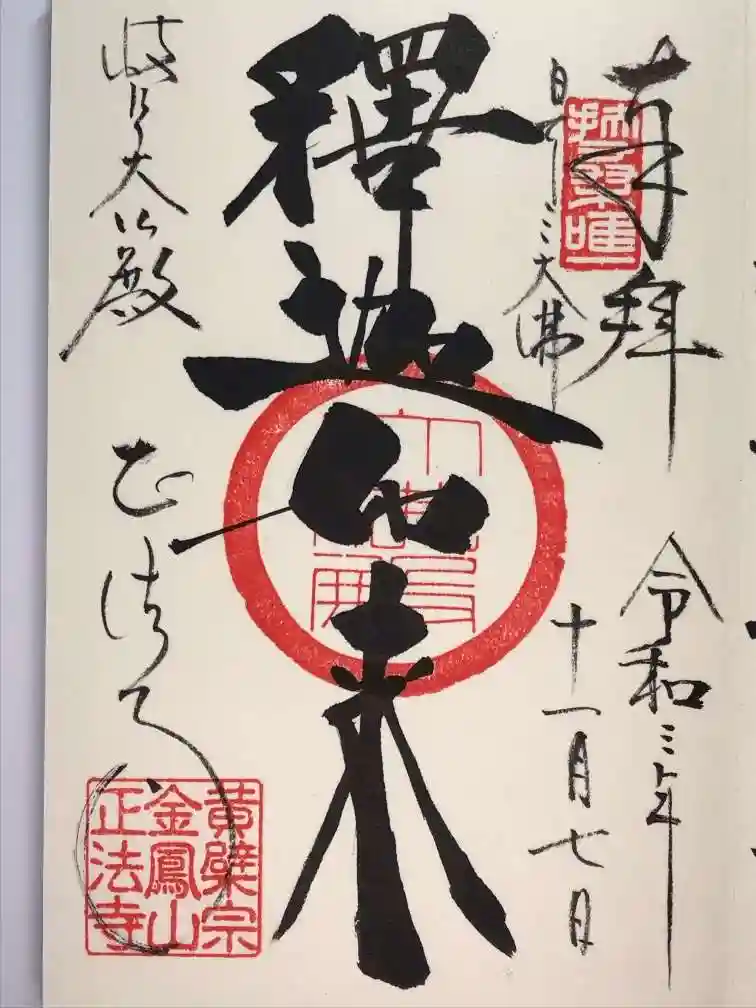 奉拝
日本三大佛
令和三年
十一月七日
釋迦如来
岐阜大仏殿
正法寺
黄檗宗
金鳳山
正法寺